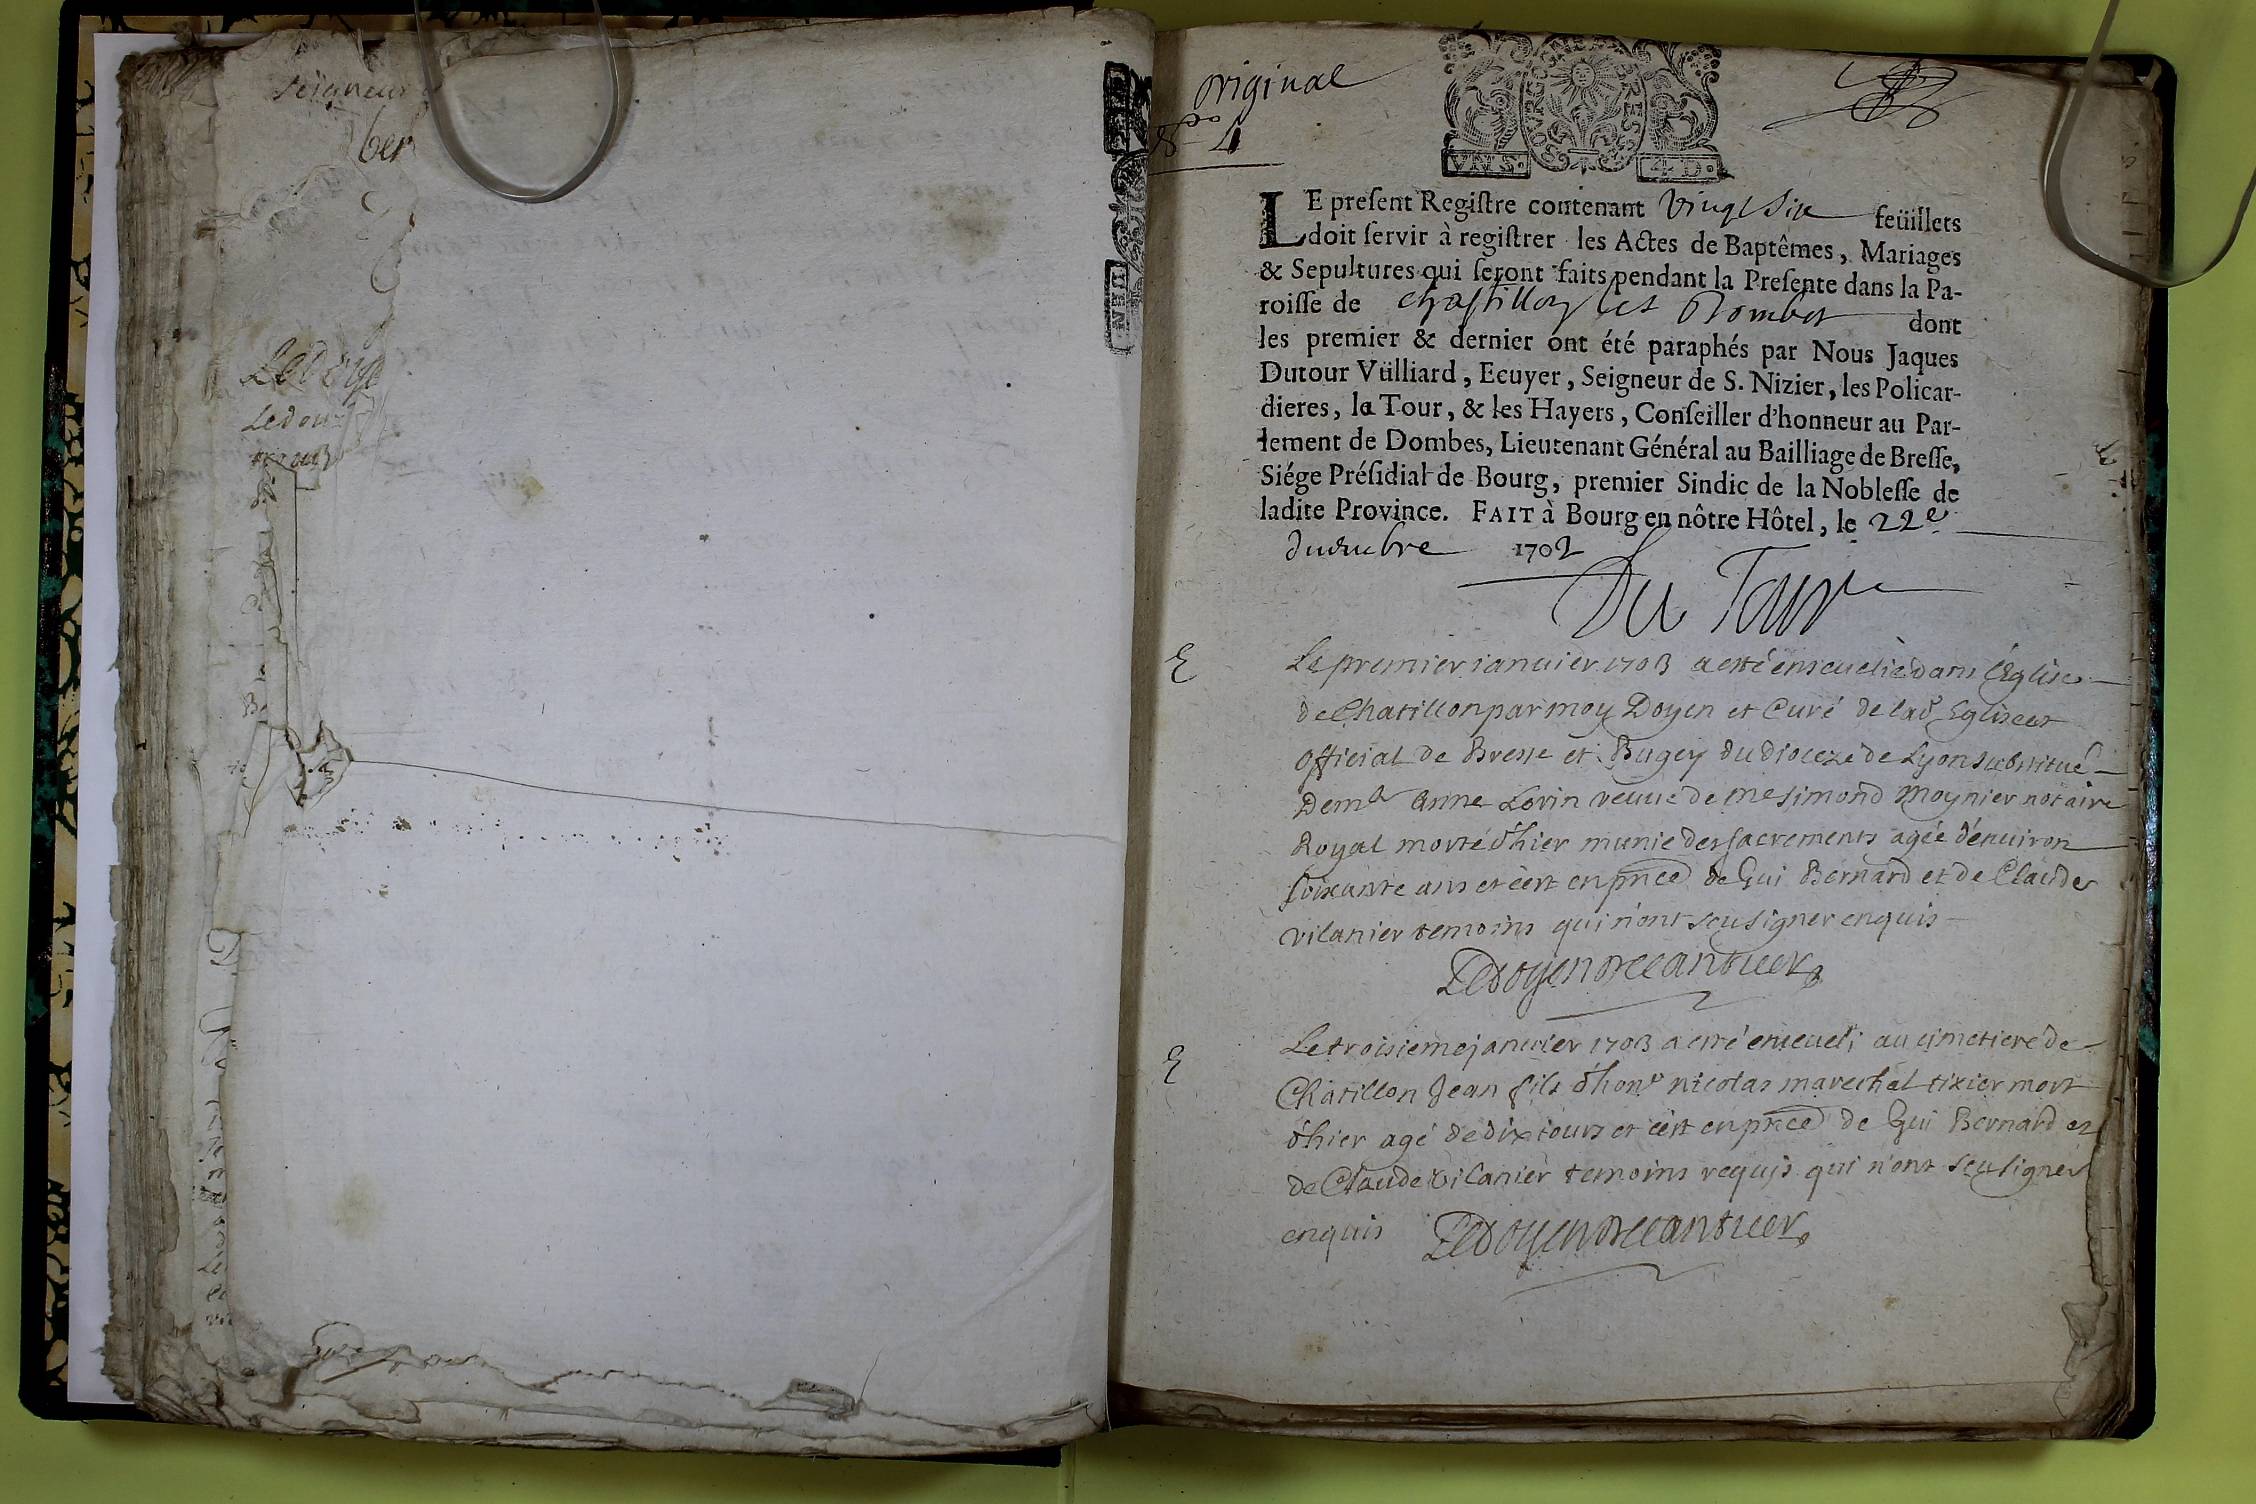 Seigneur
ber
Ledoy
Ledou
original
BOVRG EN BRESSE
VN S. 4 D.
LE present Registre contenant vingt six feüillets
doit servir à registrer les Actes de Baptêmes, Mariages
& Sepultures qui seront faits pendant la Presente dans la Pa-
roisse de Chastillon les Dombes dont
les premier & dernier ont été paraphés par Nous Jaques
Dutour Vülliard, Ecuyer, Seigneur de S. Nizier, les Policar-
dieres, la Tour, & les Hayers, Conseiller d'honneur au Par-
lement de Dombes, Lieutenant Général au Bailliage de Bresse,
Siége Présidial de Bourg, premier Sindic de la Noblesse de
ladite Province. FAIT à Bourg en nôtre Hôtel, le 22e
1702
Du Tour
E
Le premier ianuier 1703 a esté enseuelie dans l'Eglise
de Chatillon par moy Doyen et Curé de lad Eglise et
Official de Bresse et Bugey du dioceze de Lyon substitué
Demlle Anne Lorin veuue de Me Simond Moynier notaire
Royal morte d'hier munie des sacrements agée d'enuiron
soixante ans et c'est en pnce de Gui Bernard et de Claude
vilanier temoins qui n'ont sçu signer enquis
Ledoyen
E
Le troisieme januier 1703 a esté enseueli au cimetiere de
Chatillon Jean fils d'hone nicolas marechal tixier mort
d'hier agé de dix iours et c'est en pnce de Gui Bernard et
de Claude vilanier temoins requis qui n'ont sçu signer
enquis Ledoyen